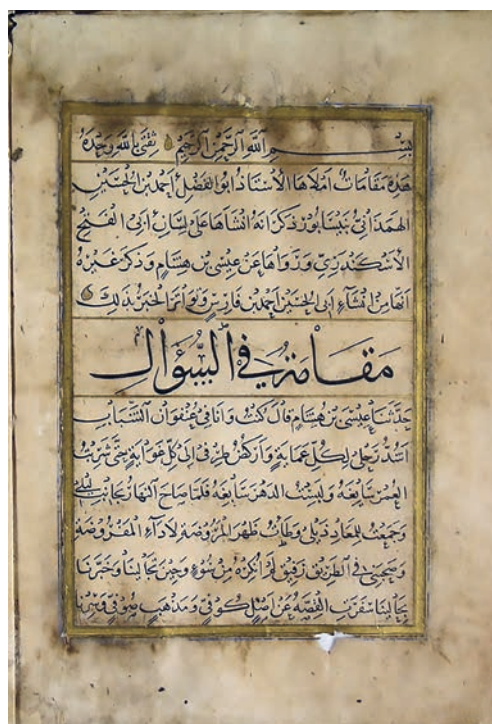 بِسْمِ اللَّهِ الرَّحْمٰنِ الرَّحِيمِ ثِقَتِي بِاللَّهِ وَحْدَهُ
هَذِهِ مَقَامَاتٌ أَمْلَاهَا الْأُسْتَاذُ أَبُو الْفَضْلِ أَحْمَدُ بْنُ الْحُسَيْنِ
الْهَمَذَانِيُّ بِنَيْسَابُورَ وَذَكَرَ أَنَّهُ أَنْشَأَهَا عَلَى لِسَانِ أَبِي الْفَتْحِ
الْأَسْكَنْدَرِيِّ وَرَوَاهَا عَنْ عِيسَى بْنِ هِشَامٍ وَذَكَرَ غَيْرُهُ
أَنَّهَا مِنْ إِنْشَاءِ أَبِي الْحُسَيْنِ أَحْمَدَ بْنِ فَارِسٍ وَتَوَاتَرَ الْخَبَرُ بِذَلِكَ
مَقَامَةٌ فِي السُّؤَالِ
حَدَّثَنَا عِيسَى بْنُ هِشَامٍ قَالَ كُنْتُ وَأَنَا فِي عُنْفُوَانِ الشَّبَابِ
أَشُدُّ رَحْلِي لِكُلِّ عَمَايَةٍ وَأَرْكُضُ طِرْفِي إِلَى كُلِّ غَوَايَةٍ حَتَّى شَرِبْتُ
الْعُمْرَ سَائِغَهُ وَلَبِسْتُ الدَّهْرَ سَابِغَهُ فَلَمَّا صَاحَ النَّهَارُ بِجَانِبِ لَيْلِي
وَجَمَعْتُ لِلْمَعَادِ ذَيْلِي وَطِئْتُ ظَهْرَ الْمَرُوضَةِ لِأَدَاءِ الْمَفْرُوضَةِ
وَصَحِبَنِي فِي الطَّرِيقِ رَفِيقٌ لَمْ أُنْكِرْهُ مِنْ سُوءٍ وَحِينَ تَجَالَيْنَا وَخَبَّرْنَا
بِحَالَيْنَا سَفَرَتِ الْقِصَّةُ عَنْ أَصْلٍ كُوفِيٍّ وَمَذْهَبٍ صُوفِيٍّ وَسِرْنَا